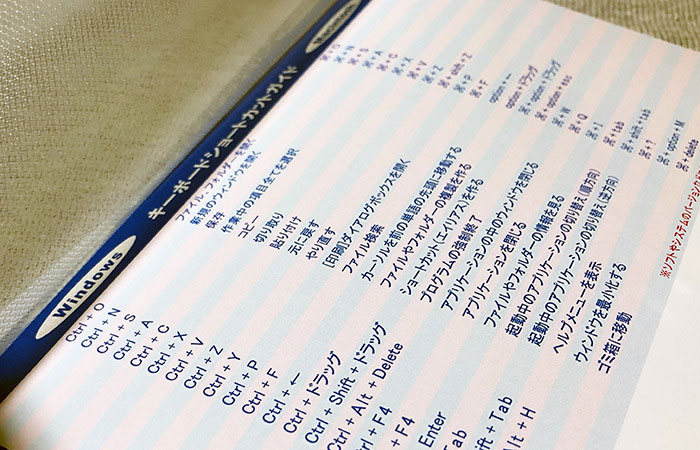 Windows キーボードショートカットガイド Macintosh
Ctrl + O ファイル・フォルダーを開く ⌘ + O
Ctrl + N 新規のウィンドウを開く ⌘ + N
Ctrl + S 保存 ⌘ + S
Ctrl + A 作業中の項目全てを選択 ⌘ + A
Ctrl + C コピー ⌘ + C
Ctrl + X 切り取り ⌘ + X
Ctrl + V 貼り付け ⌘ + V
Ctrl + Z 元に戻す ⌘ + Z
Ctrl + Y やり直す ⌘ + shift + Z
Ctrl + P [印刷]ダイアログボックスを開く ⌘ + P
Ctrl + F ファイル検索 ⌘ + F
Ctrl + ← カーソルを前の単語の先頭に移動する option + ←
Ctrl + ドラッグ ファイルやフォルダーの複製を作る option + ドラッグ
Ctrl + Shift + ドラッグ ショートカット(エイリアス)を作る ⌘ + option + ドラッグ
Ctrl + Alt + Delete プログラムの強制終了 ⌘ + option + esc
+ F4 アプリケーションの中のウィンドウを閉じる ⌘ + W
+ F4 アプリケーションを閉じる ⌘ + Q
Enter ファイルやフォルダーの情報を見る ⌘ + I
Tab 起動中のアプリケーションの切り替え(順方向) ⌘ + tab
ift + Tab 起動中のアプリケーションの切り替え(逆方向) ⌘ + shift + tab
Alt + H ヘルプメニューを表示 ⌘ + ?
ウィンドウを最小化する ⌘ + option + M
ゴミ箱に移動 ⌘ + delete
※ソフトやシステムのバージョン